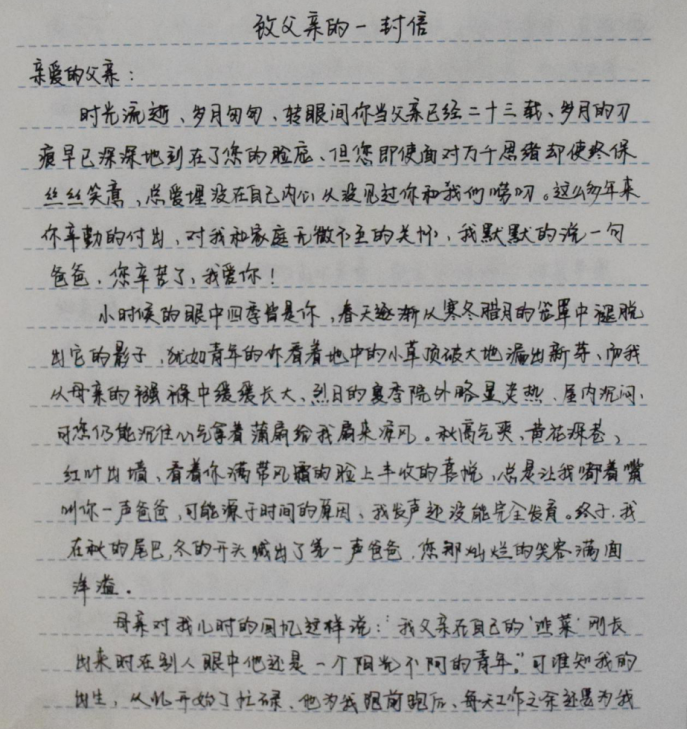 致父亲的一封信
亲爱的父亲：
时光流逝、岁月匆匆，转眼间你当父亲已经二十三载、岁月的刀
痕早已深深地刻在了您的脸庞、但您即使面对万千思绪却使终保
丝丝笑意，总爱埋没在自己内心从没见过你和我们唠叨。这么多年来
你辛勤的付出，对我和家庭无微不至的关怀，我默默的说一句
爸爸，您辛苦了，我爱你！
小时候的眼中四季皆是你，春天逐渐从寒冬腊月的笼罩中褪脱
出它的影子，犹如青年的你看着地中的小草顶破大地漏出新芽、而我
从母亲的襁褓中缓缓长大、烈日的夏季院外略显炎热、屋内沉闷，
可您仍能沉住心气拿着蒲扇给我扇来凉风。秋高气爽、黄花深巷，
红叶出墙、看着你满带风霜的脸上丰收的喜悦，总是让我嘟着嘴
叫你一声爸爸，可能源于时间的原因、我发声还没能完全发育。终于，我
在秋的尾巴，冬的开头喊出了第一声爸爸，您那灿烂的笑容满面
洋溢。
母亲对我儿时的回忆这样说：“我父亲在自己的‘韭菜’刚长
出来时在别人眼中他还是一个阳光不阿的青年，”可谁知我的
出生，从此开始了忙碌、他为我跑前跑后、每天工作之余还是为我